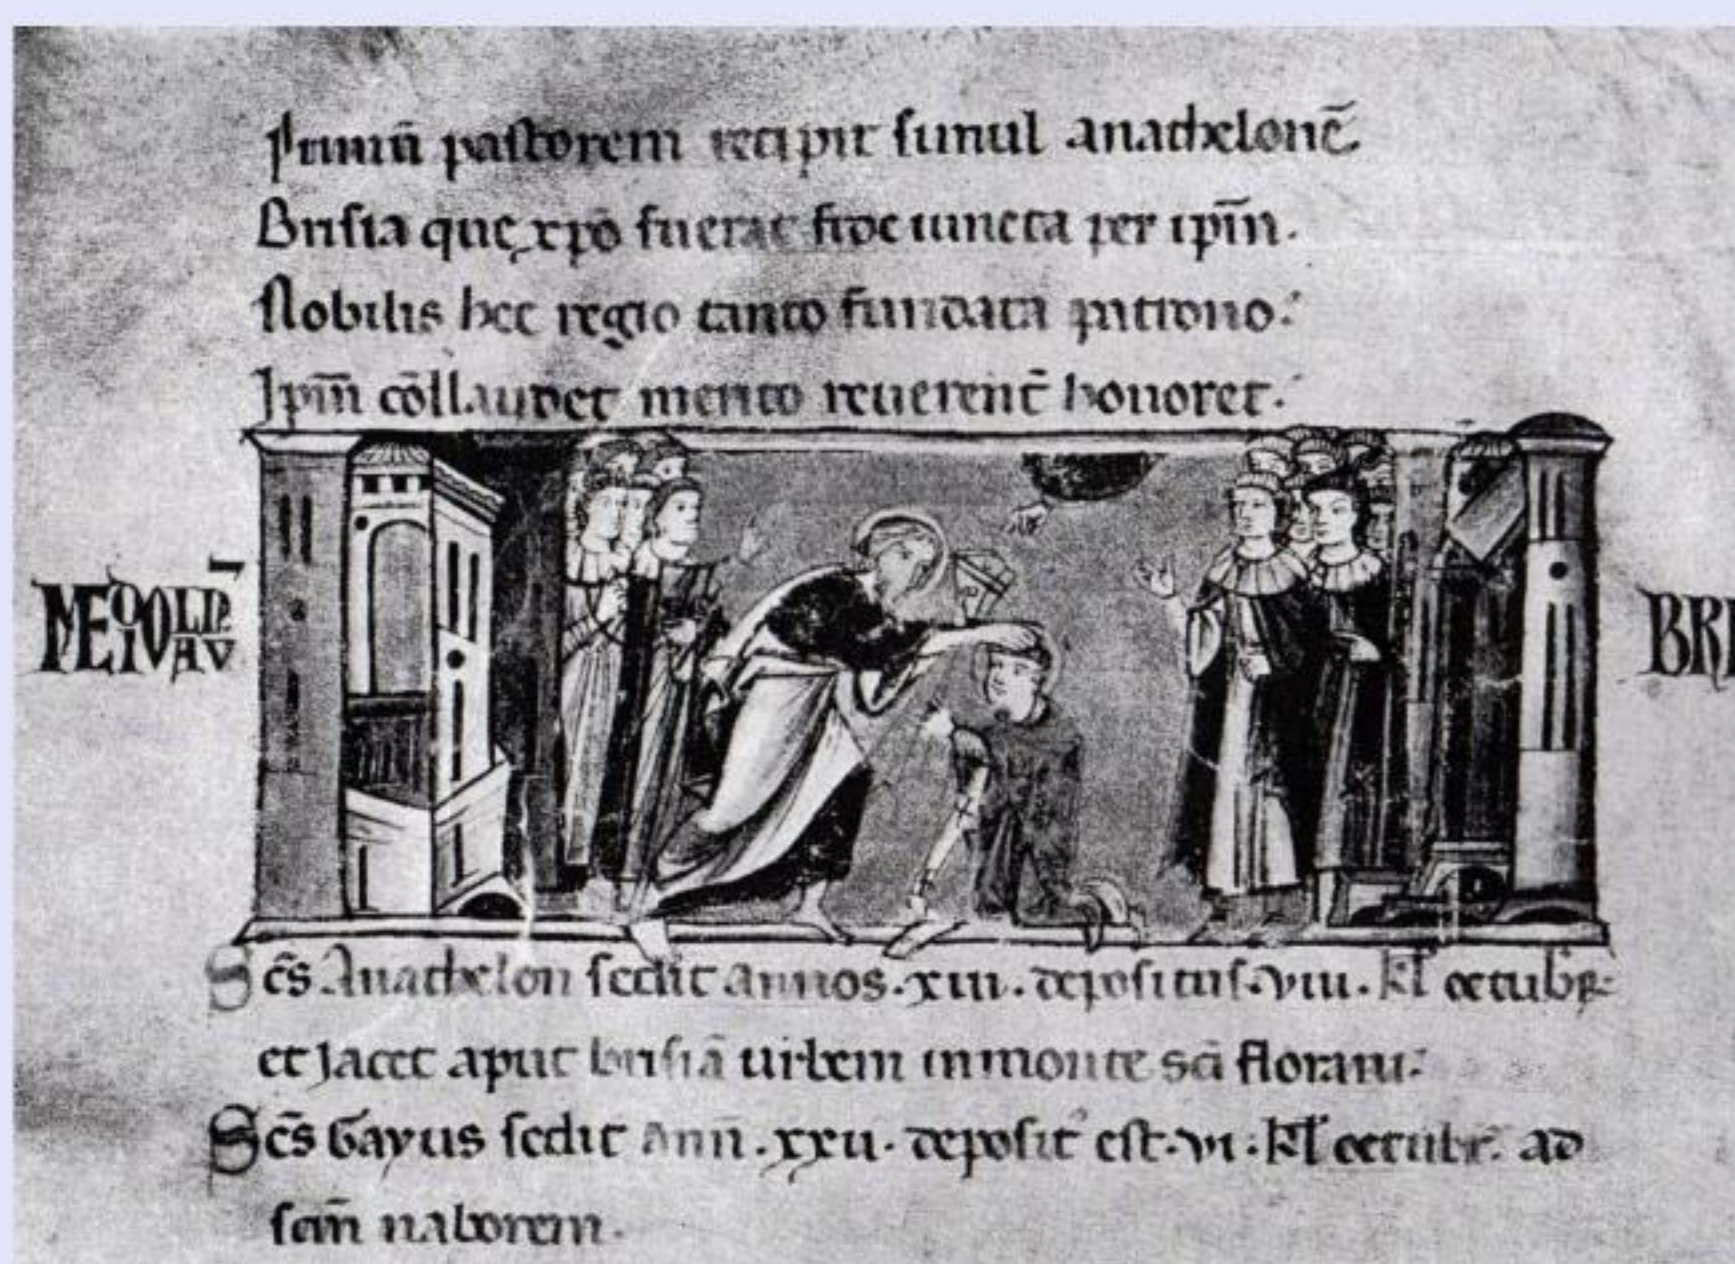 Primū pastorem recipit simul anathelonē.
Brisia que xpō fuerat fide iuncta per ipm̄.
Nobilis hec regio tanto fundata patrono.
Ipm̄ cōllaudet merito reuerent̄ honoret.
MEDIOLAN
BRI
Scs̄ Anathelon sedit annos .xiii. depositus .viii. kl̄ octubr̄
et jacet aput brisiā urbem in monte sc̄i florani.
Scs̄ Gayus sedit ann̄ .xxii. deposit est .vi. kl̄ octubr̄. ad
scm̄ naborem.